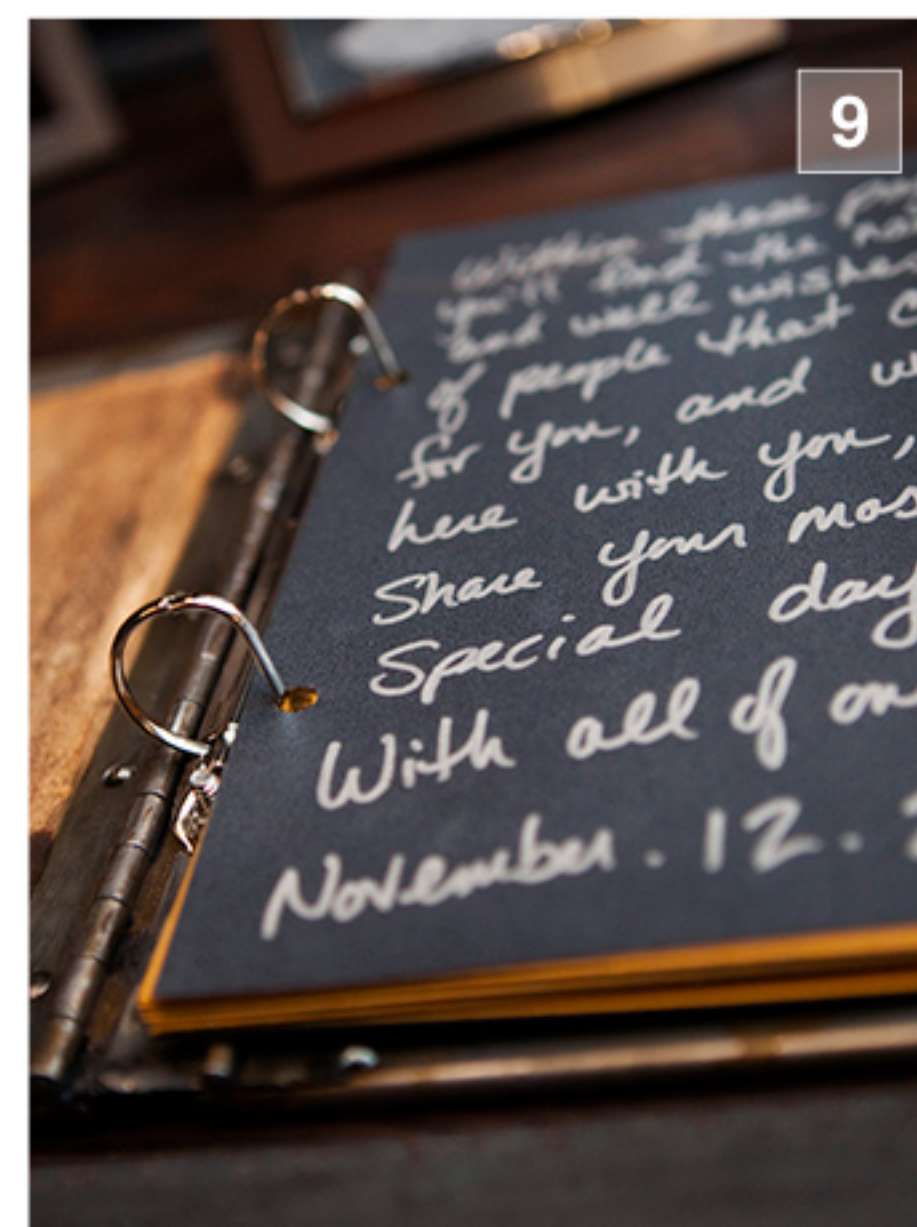 9
Within these
you'll find the
and well wishes
of people that
for you, and
here with you,
Share your
Special day
With all of
November. 12.